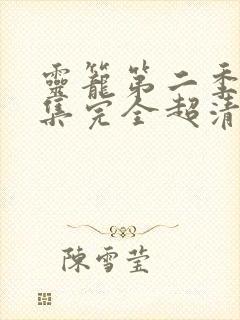 靈籠第二季
集完全超清
陳雪莹